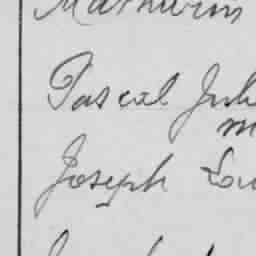 Mathurin
Pascal Jul
m
Joseph Lou